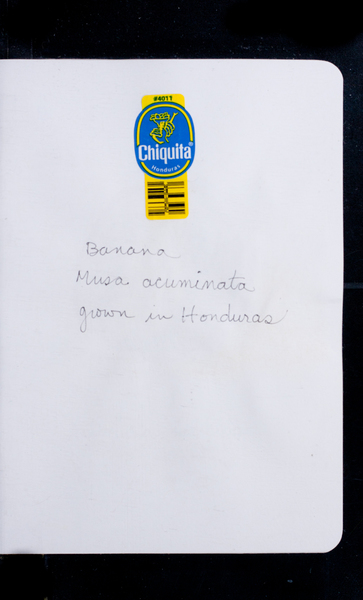 #4011
Chiquita
Honduras
Banana
Musa acuminata
grown in Honduras